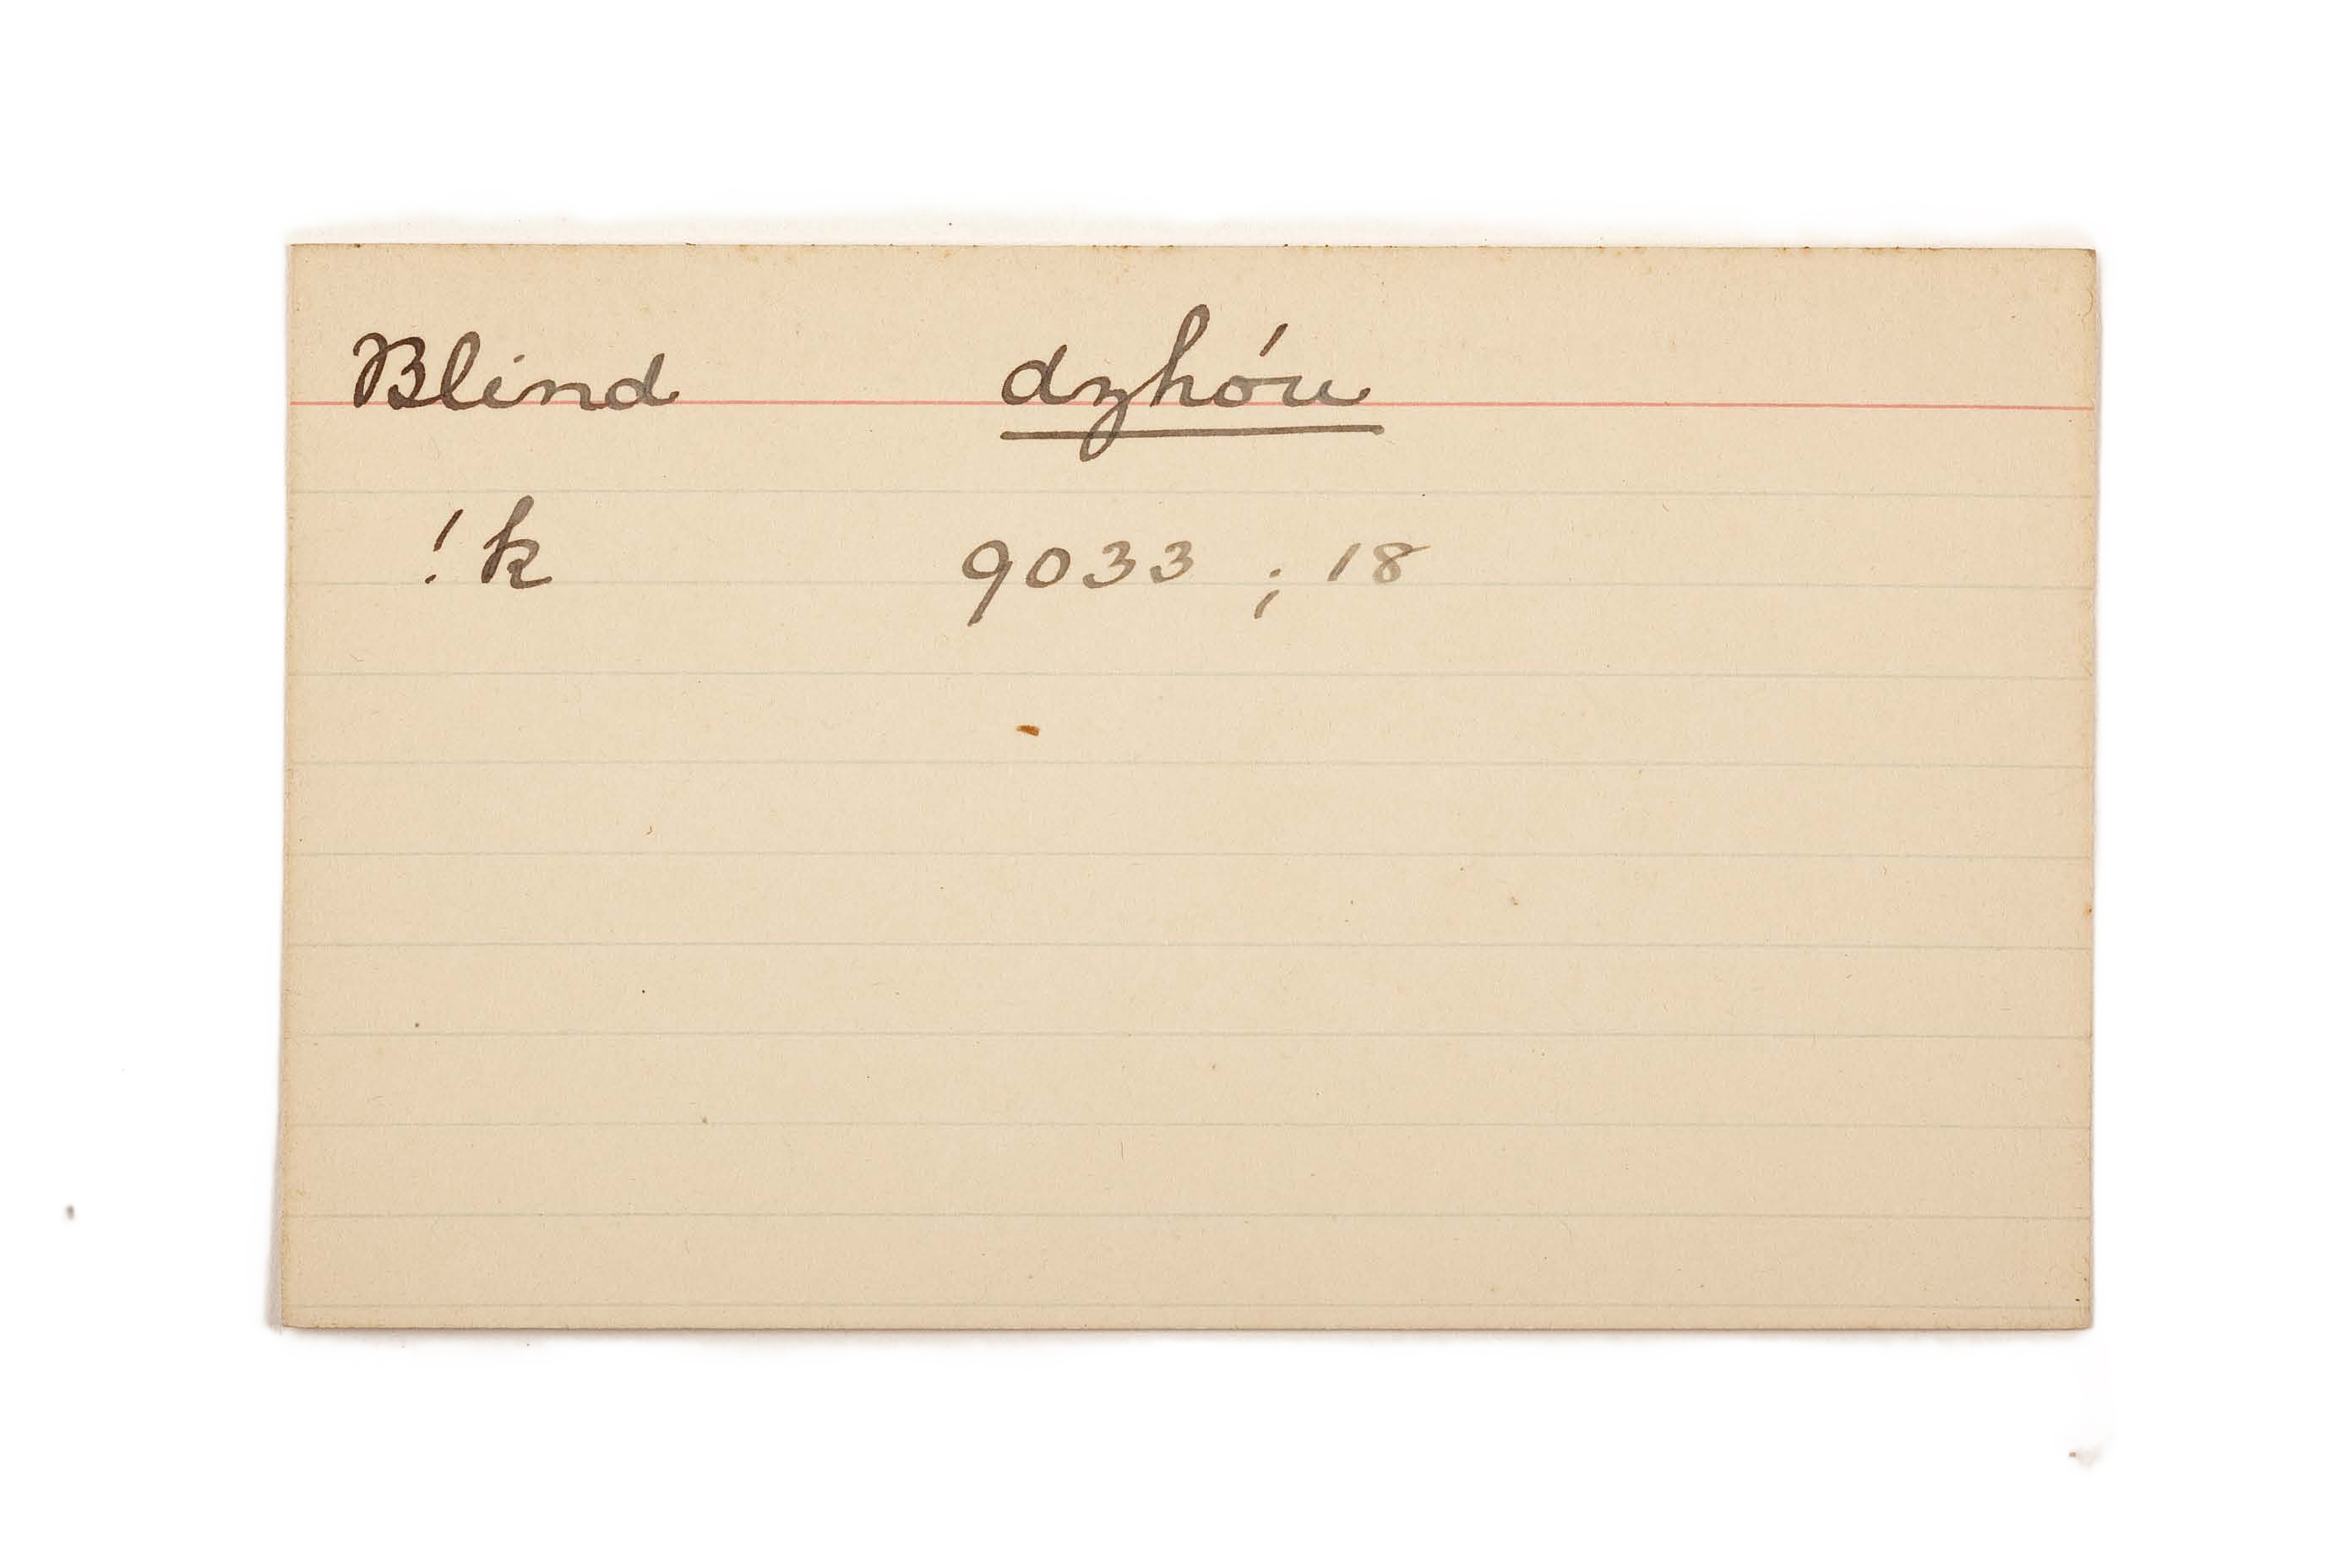 Blind dzhóu
!k 9033 ; 18